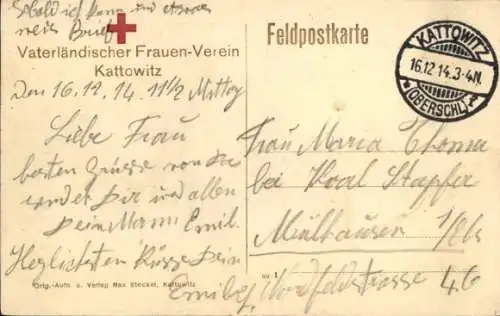 Sobald ich kann und etwas
neis Brief
Vaterländischer Frauen-Verein
Kattowitz
Den 16.12.14. 11 1/2 Mittag
Liebe Frau
besten Grüsse von
sendet Dir und allen
Dein Mann Emil.
Herzlichsten Küsse Dein
Emil
Orig.-Aufn. u. Verlag Max Steckel, Kattowitz
Feldpostkarte
KATTOWITZ
16.12.14.3-4N.
* (OBERSCHL) *
Frau Maria Thoma
bei Karl Stapfer
Mülhausen i/Els
Nordfeldstrasse 46